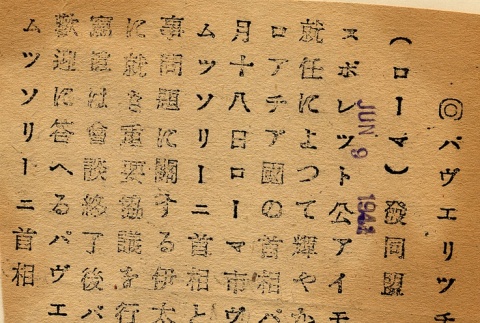 ◎パヴエリツチ
(ローマ)發同盟
スポレツト公アイモ
就任によつて輝やか
ロアチア國の首相パ
月十八日ローマ市ヴ
ムツソリーニ首相と
事問題に關する伊太
に就き重要協議を行
富館は會談終了後パ
歡迎に答へるパヴエ
ムツソリーニ首相
JUN 9 1941